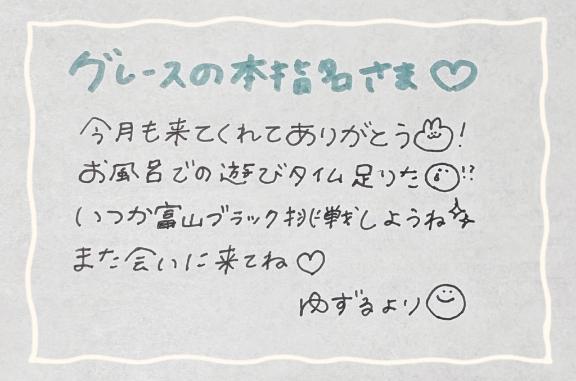 グレースの本指名さま♡
今月も来てくれてありがとう!
お風呂での遊びタイム足りた!?
いつか富山ブラック挑戦しようね
また会いに来てね♡
ゆずるより